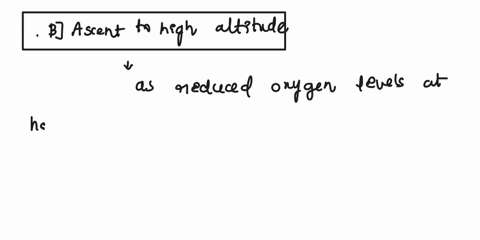 . B] Ascent to high altitude
as reduced oxygen levels at
ha